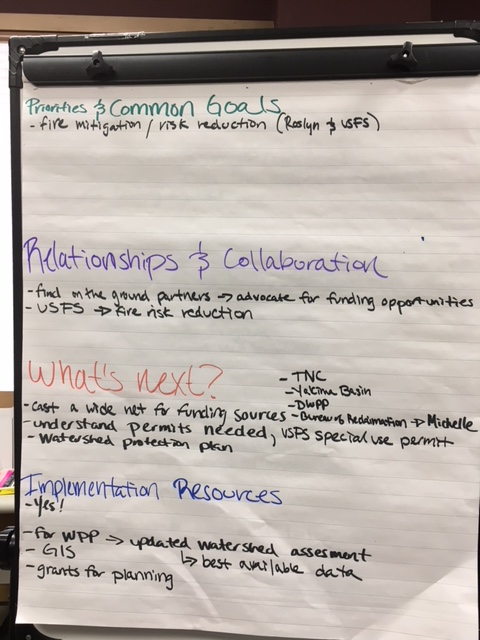 Priorities & Common Goals
- fire mitigation / risk reduction (Roslyn & USFS)
Relationships & Collaboration
- find on the ground partners → advocate for funding opportunities
- USFS → fire risk reduction
What's next?
- TNC
- Yakima Basin
- DWPP
- Bureau of Reclamation → Michelle
- Cast a wide net for funding sources
- understand permits needed, USFS special use permit
- Watershed protection plan
Implementation Resources
- Yes!
- For WPP → updated watershed assesment
↳ best available data
- GIS
- grants for planning